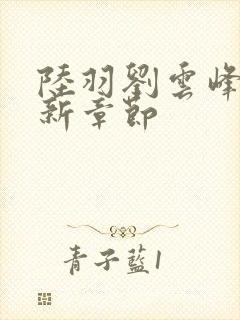 陸羽劉雲峰
新章節
青子藍1